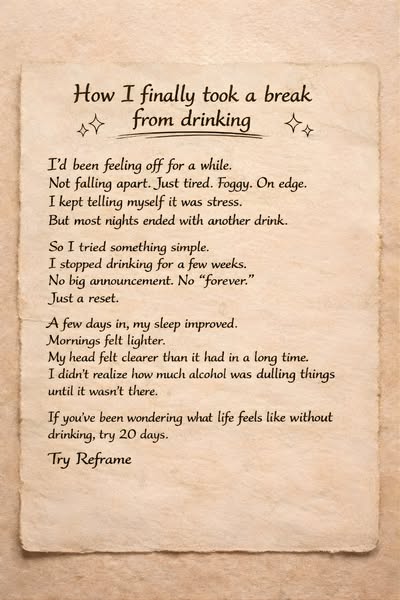 How I finally took a break
from drinking
I'd been feeling off for a while.
Not falling apart. Just tired. Foggy. On edge.
I kept telling myself it was stress.
But most nights ended with another drink.
So I tried something simple.
I stopped drinking for a few weeks.
No big announcement. No “forever.”
Just a reset.
A few days in, my sleep improved.
Mornings felt lighter.
My head felt clearer than it had in a long time.
I didn't realize how much alcohol was dulling things
until it wasn't there.
If you've been wondering what life feels like without
drinking, try 20 days.
Try Reframe